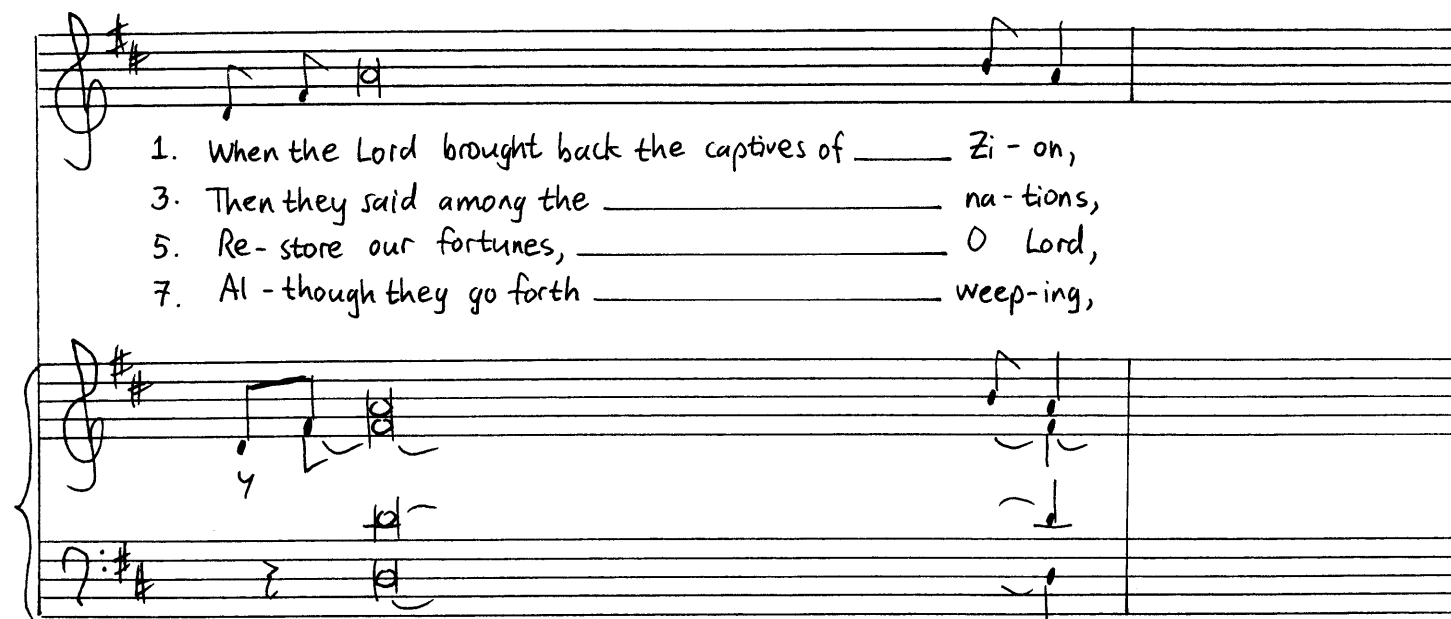 1. When the Lord brought back the captives of ______ Zi - on,
3. Then they said among the ______ na - tions,
5. Re - store our fortunes, ______ O Lord,
7. Al - though they go forth ______ weep - ing,